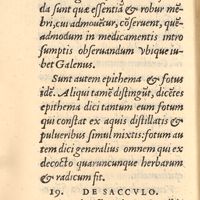 da sunt quæ essentiā & robur mēbri, cui admouētur, cōseruent, quēadmodum
in medicamentis intro
sumptis obseruandum vbique iubet
Galenus.
Sunt autem epithema & fotus
idē. Aliqui tamē distingūt, dicētes
epithema dici tantum eum fotum
qui constat ex aquis distillatis &
pulueribus simul mixtis: fotum autem
dici generalius omnem qui ex
decocto quaruncunque herbarum
& radicum fit.
19. DE SACCVLO.